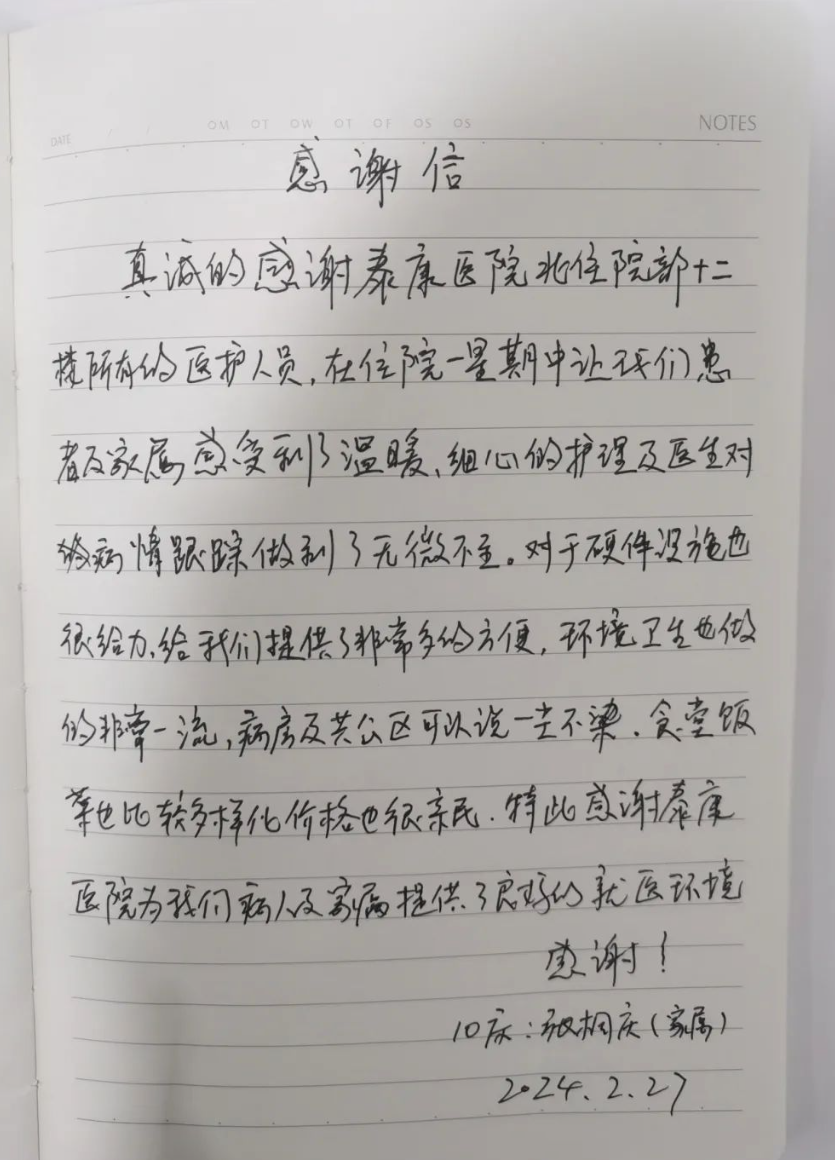 DATE
M T W T F S S
NOTES
感谢信
真诚的感谢泰康医院北住院部十二
楼所有的医护人员,在住院一星期中让我们患
者及家属感受到了温暖、细心的护理及医生对
病情跟踪做到了无微不至。对于硬件设施也
很给力,给我们提供了非常多的方便,环境卫生也做
的非常一流,病房及共公区可以说一尘不染、食堂饭
菜也比较多样化价格也很亲民.特此感谢泰康
医院为我们病人及家病提供了良好的就医环境
感谢!
10床:张桐庆(家属)
2024.2.27